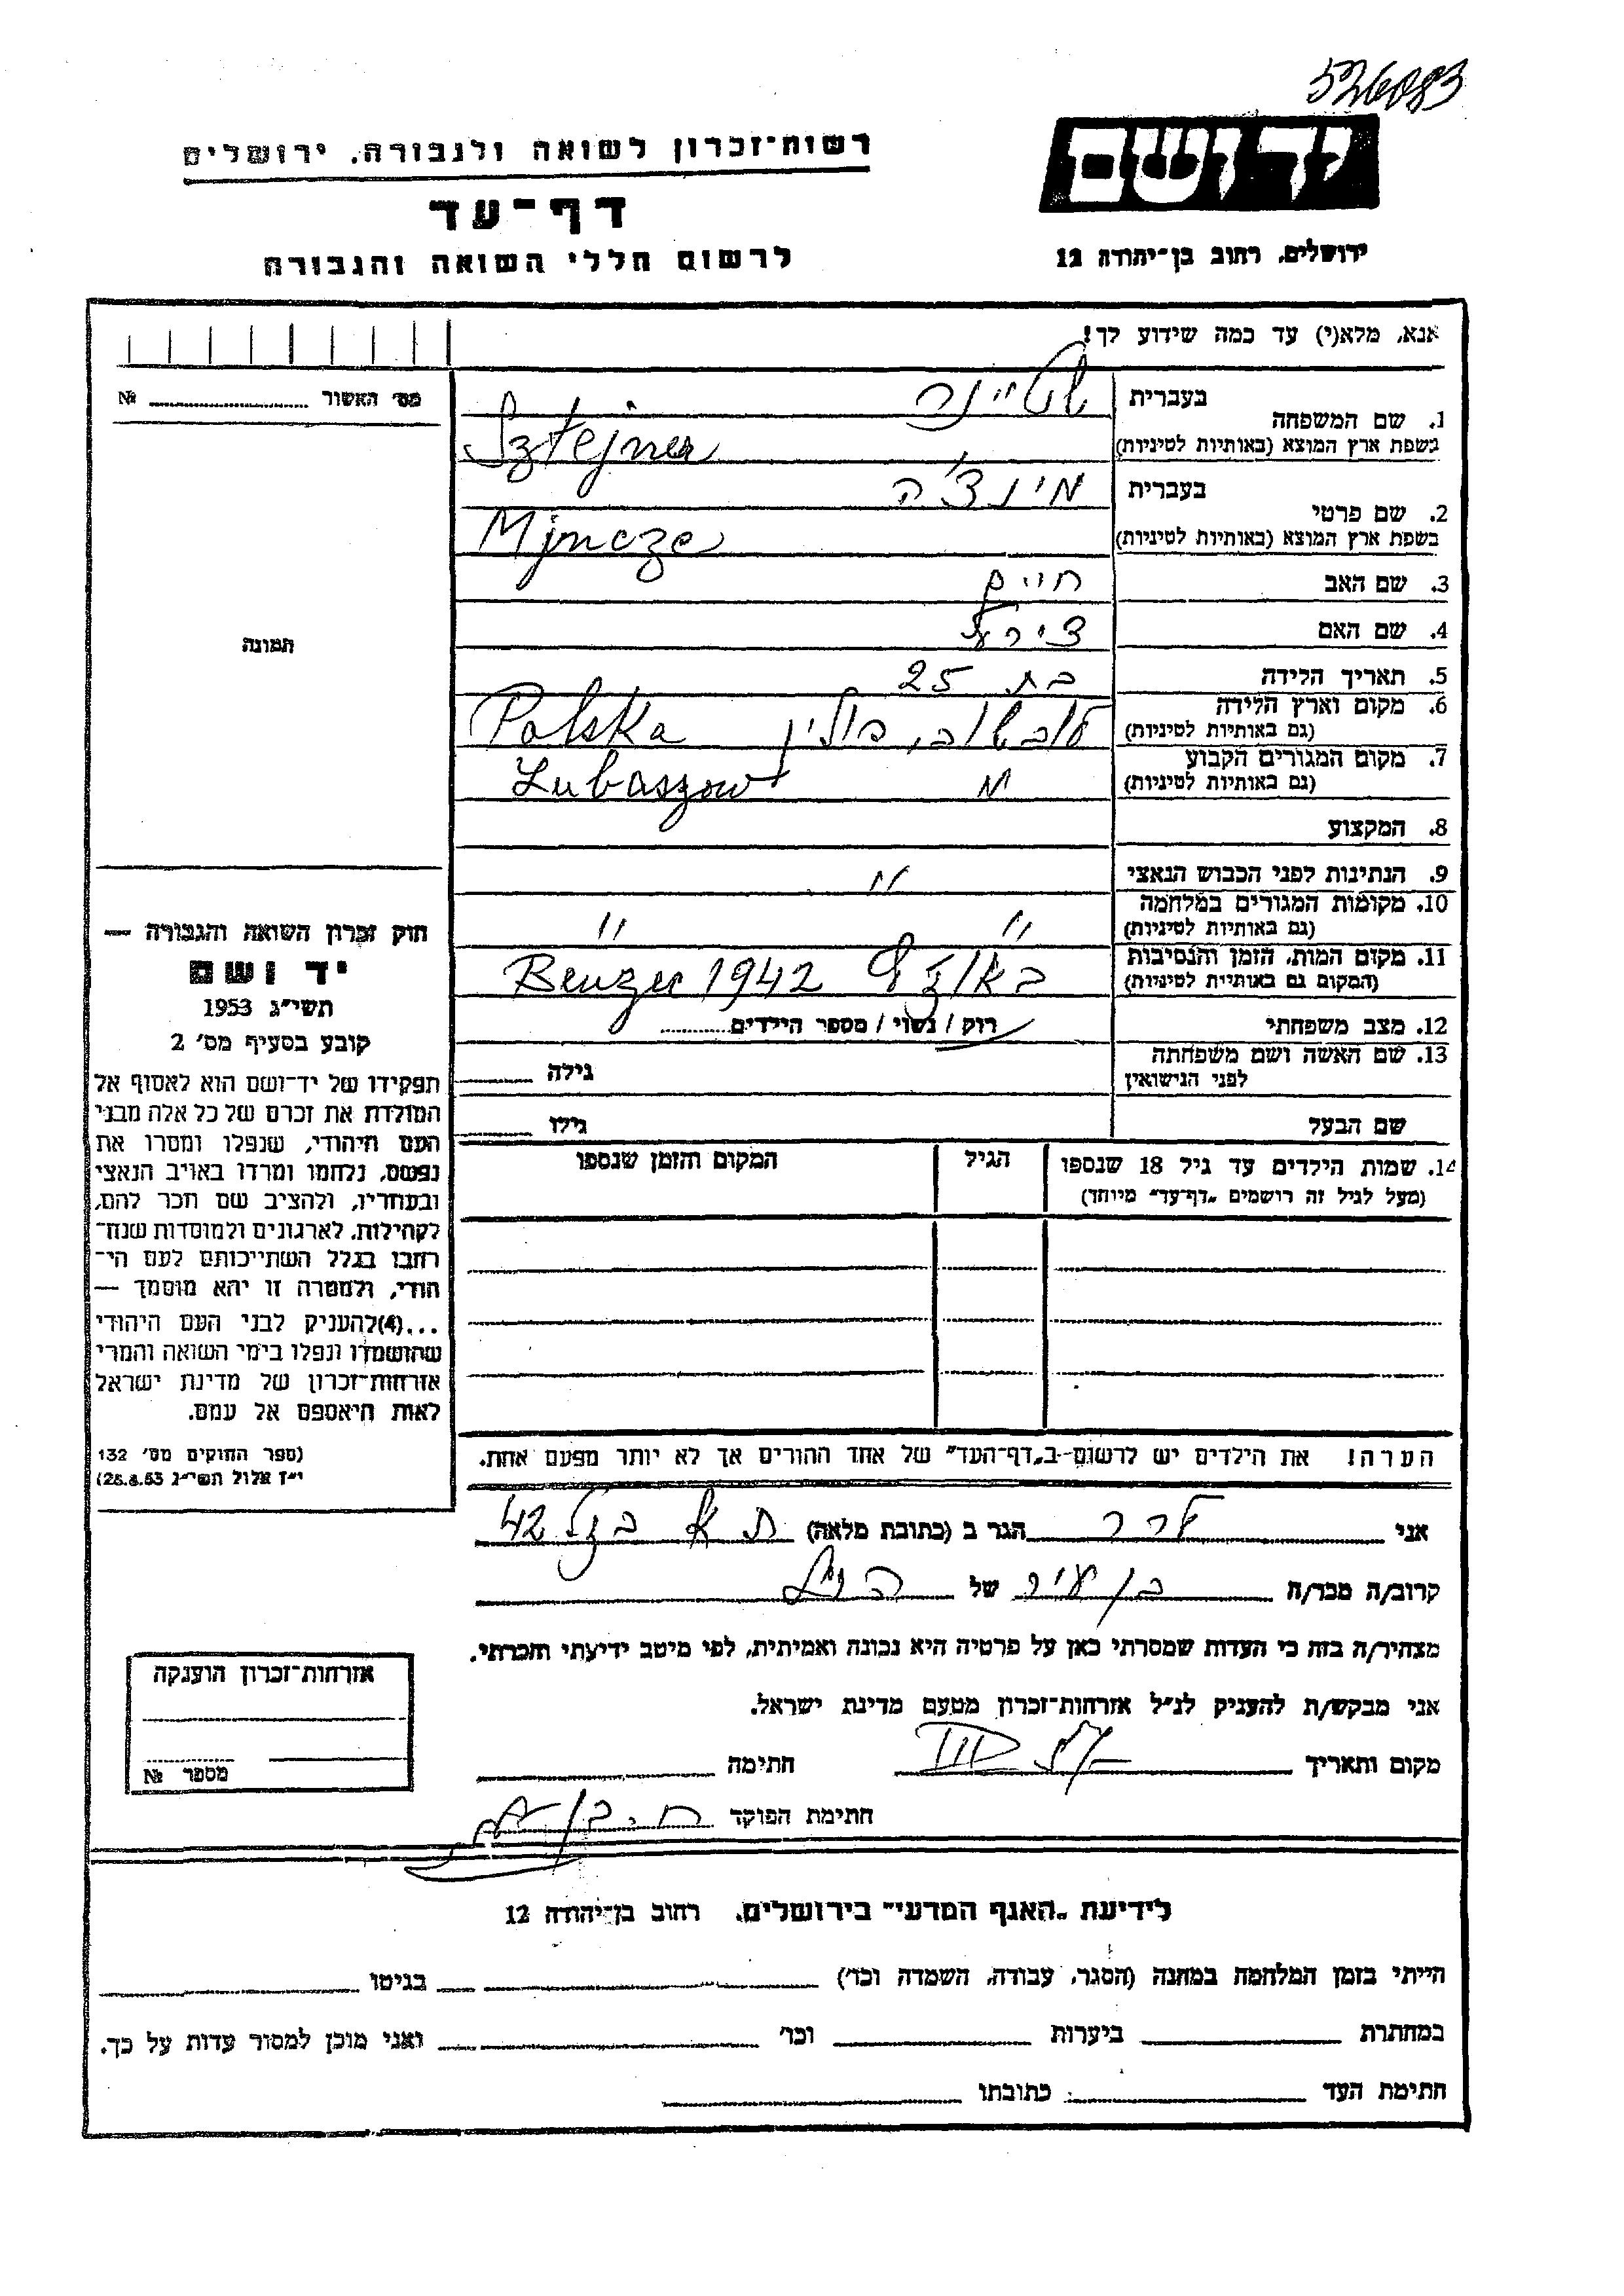 526083
יד ושם
רשות־זכרון לשואה ולגבורה, ירושלים
דף־עד
לרשום חללי השואה והגבורה
ירושלים, רחוב בן־יהודה 12
אנא, מלא(י) עד כמה שידוע לך!
מס׳ האשור № 
1. שם המשפחה
בעברית שטיינר
בשפת ארץ המוצא (באותיות לטיניות) Sztejner
2. שם פרטי
בעברית מינצ'ה
בשפת ארץ המוצא (באותיות לטיניות) Mjncze
3. שם האב חיים
4. שם האם
5. תאריך הלידה בת 25
6. מקום וארץ הלידה לובשוב, פולין Polska
(גם באותיות לטיניות)
7. מקום המגורים הקבוע " Lubaszow
(גם באותיות לטיניות)
8. המקצוע
9. הנתינות לפני הכבוש הנאצי "
10. מקומות המגורים במלחמה " "
(גם באותיות לטיניות)
11. מקום המות, הזמן והנסיבות 1942
(המקום גם באותיית לטיניות)
12. מצב משפחתי רוק / נשוי / מספר הילדים
13. שם האשה ושם משפחתה גילה
לפני הנישואין
שם הבעל גילו
14. שמות הילדים עד גיל 18 שנספו הגיל המקום והזמן שנספו
(מעל לגיל זה רושמים „דף־עד" מיוחד)
תמונה
חוק זכרון השואה והגבורה —
יד ושם
תשי״ג 1953
קובע בסעיף מס׳ 2
תפקידו של יד־ושם הוא לאסוף אל
המולדת את זכרם של כל אלה מבני
העם היהודי, שנפלו ומסרו את
נפשם, נלחמו ומרדו באויב הנאצי
ובעוזריו, ולהציב שם וזכר להם,
לקהילות, לארגונים ולמוסדות שנח־
רבו בגלל השתייכותם לעם הי־
הודי, ולמטרה זו יהא מוסמך —
...(4)להעניק לבני העם היהודי
שהושמדו ונפלו בימי השואה והמרי
אזרחות־זכרון של מדינת ישראל
לאות היאספם אל עמם.
(ספר החוקים מס׳ 132
י״ז אלול תשי״ג 28.8.53)
הערה! את הילדים יש לרשום ב„דף־העד" של אחד ההורים אך לא יותר מפעם אחת.
אני לרר הגר ב (כתובת מלאה) ת א 42
קרוב/ה מכר/ה בן עיר של הנ"ל
מצהיר/ה בזה כי העדות שמסרתי כאן על פרטיה היא נכונה ואמיתית, לפי מיטב ידיעתי והכרתי.
אני מבקש/ת להעניק לנ״ל אזרחות־זכרון מטעם מדינת ישראל.
מקום ותאריך חתימה
חתימת הפוקד
אזרחות־זכרון הוענקה
מספר №
לידיעת „האגף המדעי" בירושלים, רחוב בן־יהודה 12
הייתי בזמן המלחמה במחנה (הסגר, עבודה, השמדה וכו׳) בגיטו
במחתרת ביערות וכו׳ ואני מוכן למסור עדות על כך.
חתימת העד כתובתו